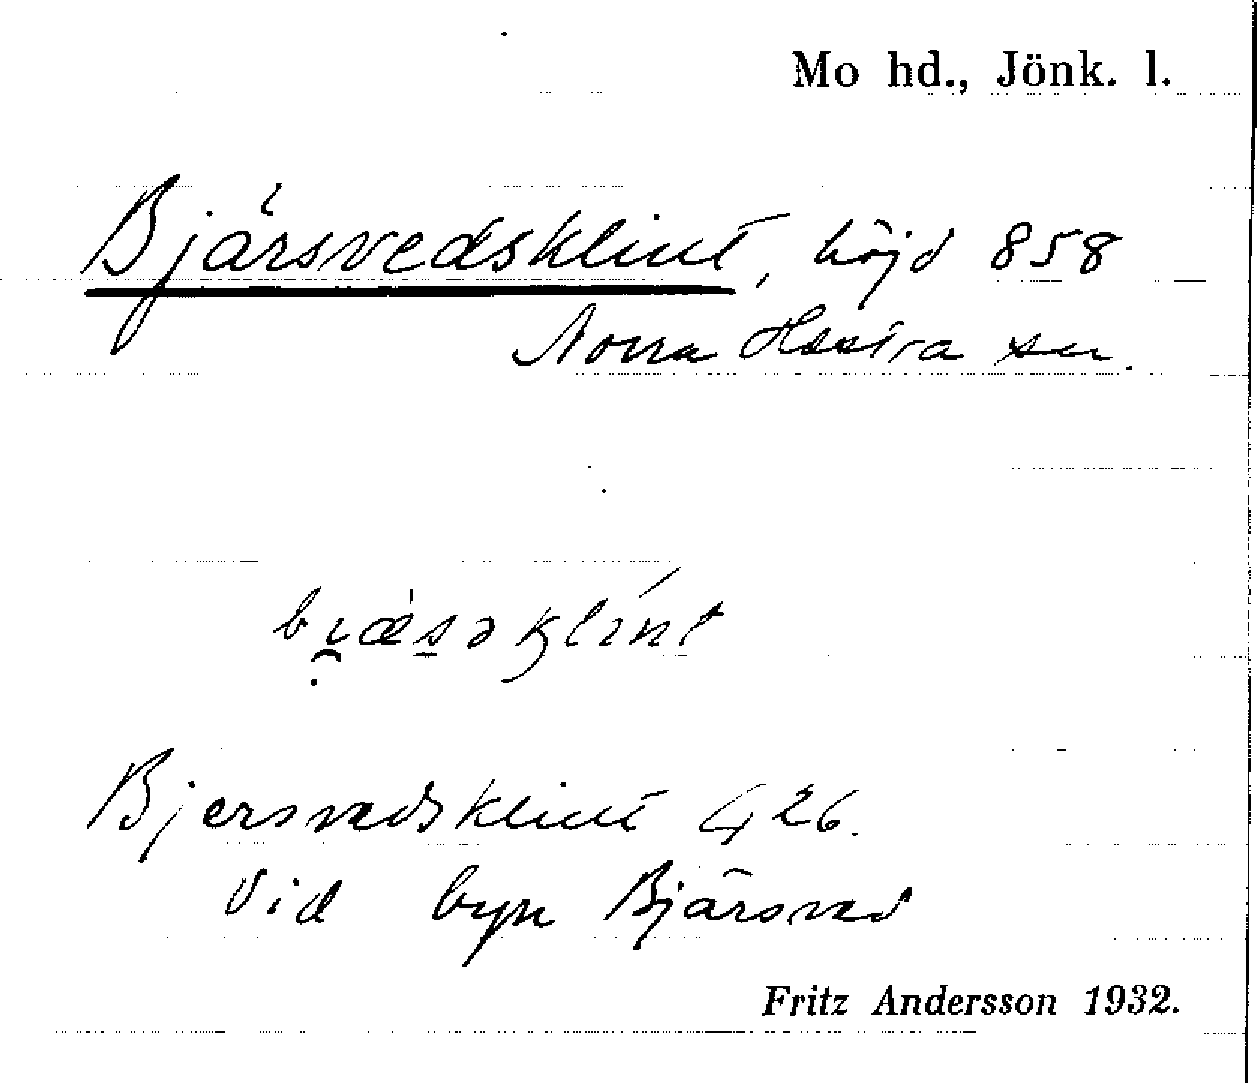 Mo hd., Jönk. l.
Bjärsvedsklint, höjd 858
Norra Hestra sn.
Bjersvedsklint G 26.
Vid byn Bjärsved
Fritz Andersson 1932.